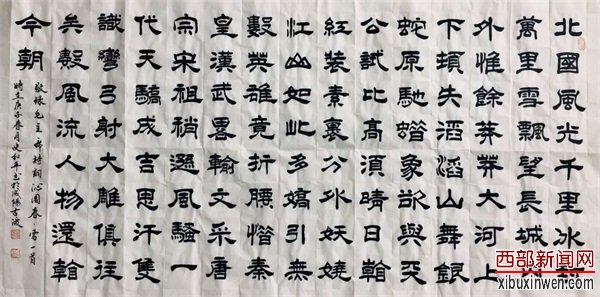 北國風光千里冰封
萬里雪飄望長城内
外惟餘莽莽大河上
下頓失滔滔山舞銀
蛇原馳蠟象欲與天
公試比高須晴日看
紅裝素裹分外妖嬈
江山如此多嬌引無
數英雄競折腰惜秦
皇漢武略輸文采唐
宗宋祖稍遜風騷一
代天驕成吉思汗隻
識彎弓射大雕俱往
矣數風流人物還看
今朝
敬録毛主席詩詞沁園春雪一首
時在庚子春月史和平
西部新闻网
xibuxinwen.com